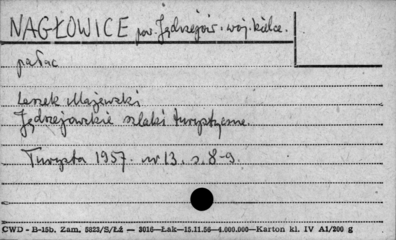 NAGŁOWICE pow. Jędrzejów. woj. kielce.
pałac
Leszek Majewski
Jędrzejowskie szlaki turystyczne.
Turysta 1957. nr 13. s. 8-9.
CWD - B-15b. Zam. 5823/S/Łż — 3016—Łak—15.11.56—4.000.000—Karton kl. IV A1/200 g